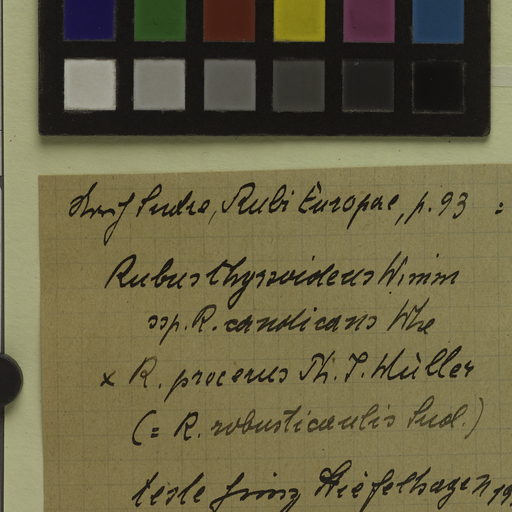 Sudre, Rubi Europae, p. 93 :
Rubus thyrsoideus Wimm
ssp. R. candicans Whe
x R. procerus Ph. J. Müller
(= R. robusticaulis Sud.)
teste